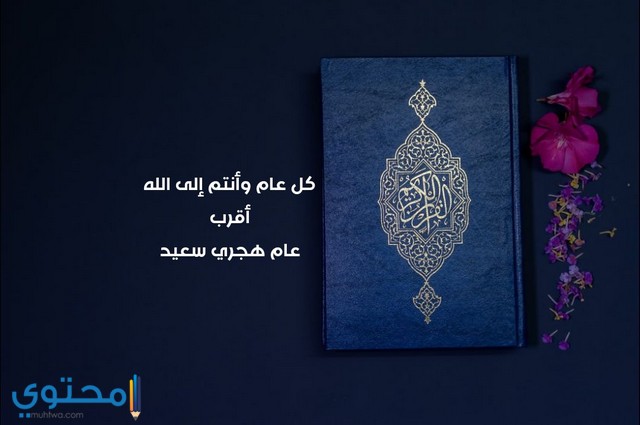 كل عام وأنتم إلى الله
أقرب
عام هجري سعيد
القرآن الكريم
محتوي
muhtwa.com